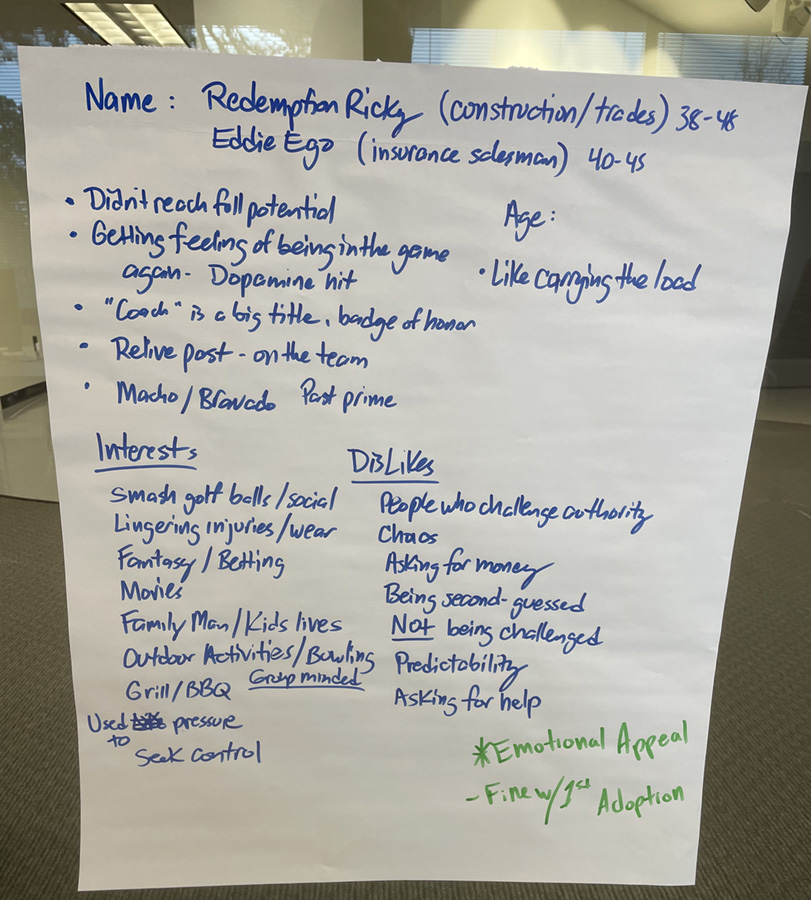 Name: Redemption Ricky (construction/trades) 38-48
Eddie Ego (insurance salesman) 40-45
• Didn't reach full potential
Age:
• Getting feeling of being in the game
again - Dopamine hit
• Like carrying the load
• "Coach" is a big title, badge of honor
• Relive past - on the team
• Macho/Bravado Past prime
Interests
Smash golf balls/social
Lingering injuries/wear
Fantasy/Betting
Movies
Family Man/Kids lives
Outdoor Activities/Bowling
Grill/BBQ Group minded
Used to pressure
Seek control
DisLikes
People who challenge authority
Chaos
Asking for money
Being second-guessed
Not being challenged
Predictability
Asking for help
*Emotional Appeal
- Fine w/1st Adoption